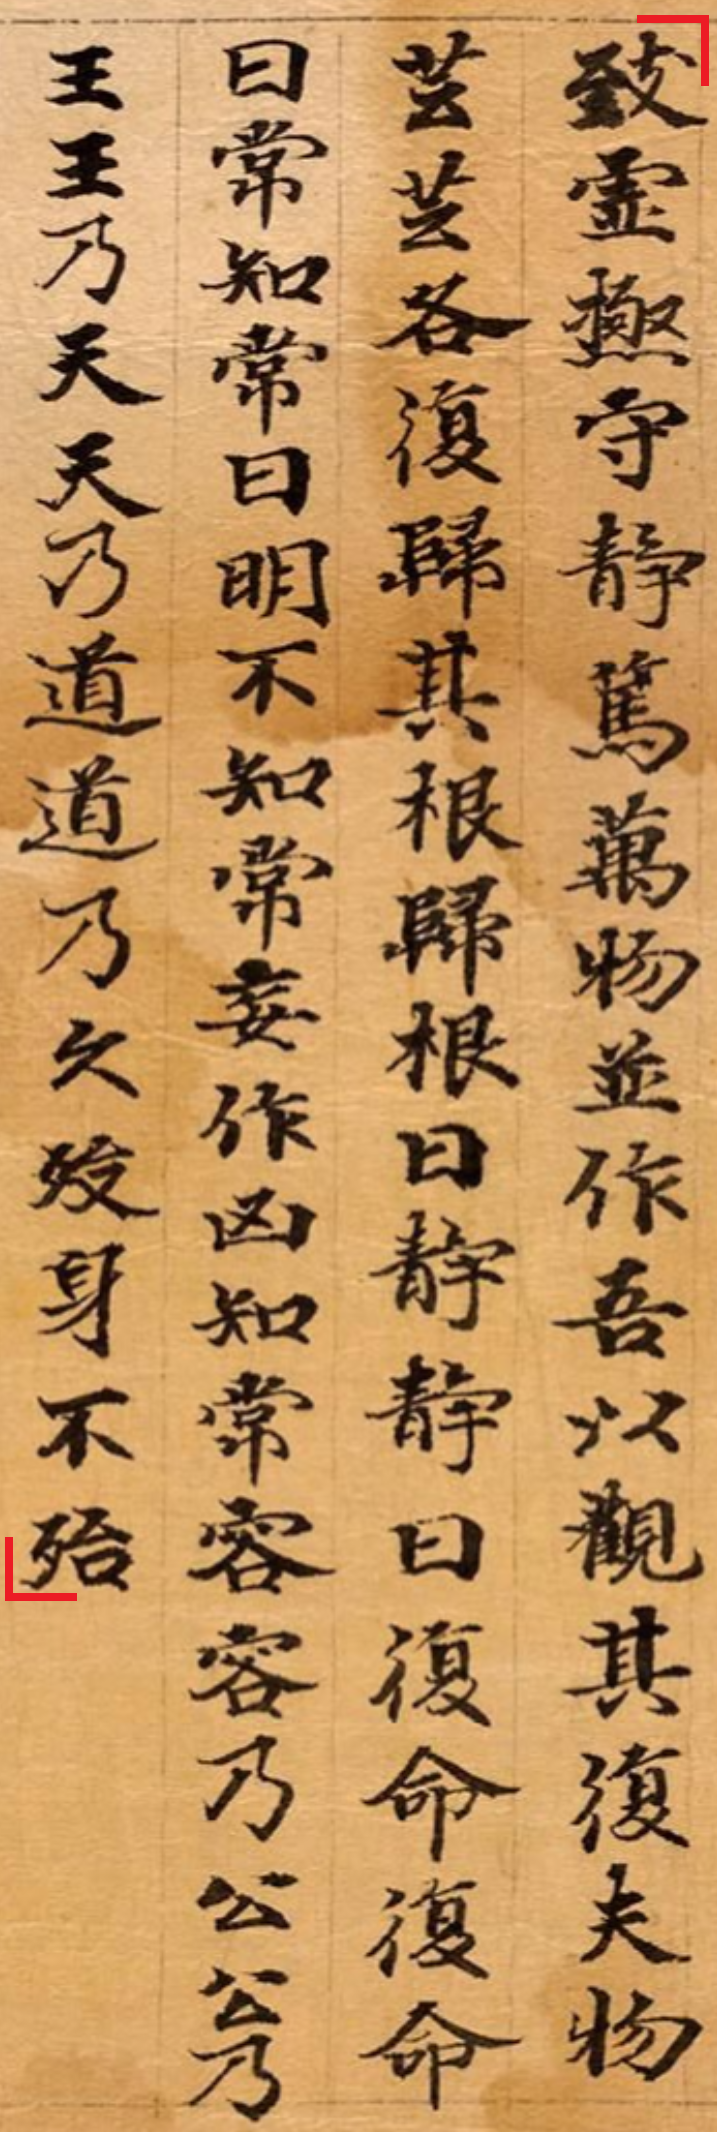 致虛極守静篤萬物並作吾以觀其復夫物
芸芸各復歸其根歸根曰静静曰復命復命
曰常知常曰明不知常妄作凶知常容容乃公公乃
王王乃天天乃道道乃久歿身不殆